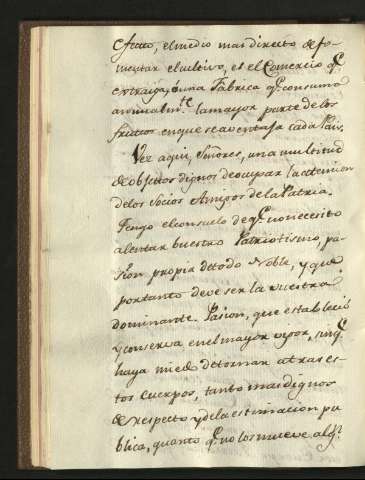 efecto, el medio mas directo de fo-
mentar el cultivo, es el Comercio q.e
extraiga, ó una Fábrica q.e consuma
anualm.te la mayor parte de los
frutos en que se aventaja cada Pais.
Vez aqui, Señores, una multitud
de objettos dignos de ocupar la atencion
de los Socios Amigos de la Patria.
Tengo el consuelo de q.e no necesito
alentar buestro Patriotismo, pa-
sion propia de todo Noble, y que
por tanto deve ser la vuestra
dominante. Pasion, que establecio
y conserva en el mayor vigor, sin q.e
haya miedo de tornar atras es-
tos Cuerpos, tanto mas dignos
de respecto y de la estimacion pu
blica, quanto q.e no los mueve alg.n